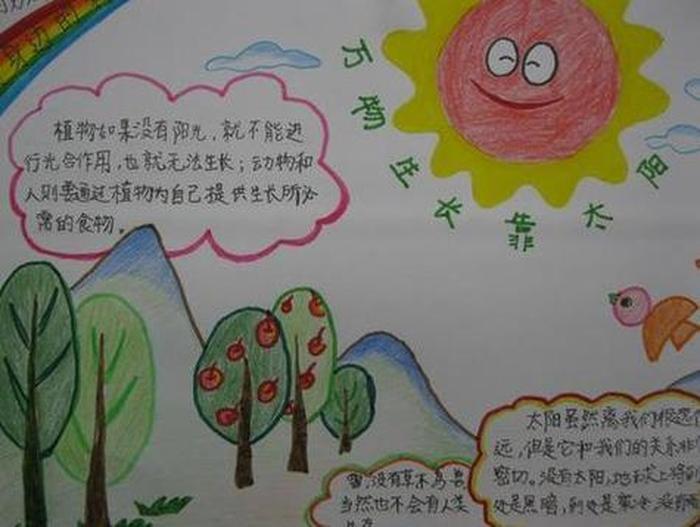 身边的
万物生长靠太阳
植物如果没有阳光，就不能进
行光合作用，也就无法生长；动物和
人则要通过植物为自己提供生长所必
需的食物。
太阳虽然离我们很遥
远，但是它和我们的关系非
密切。没有太阳，地球上将
处是黑暗，到处是寒冷，没
雪，没有草木鸟兽
当然也不会有人类